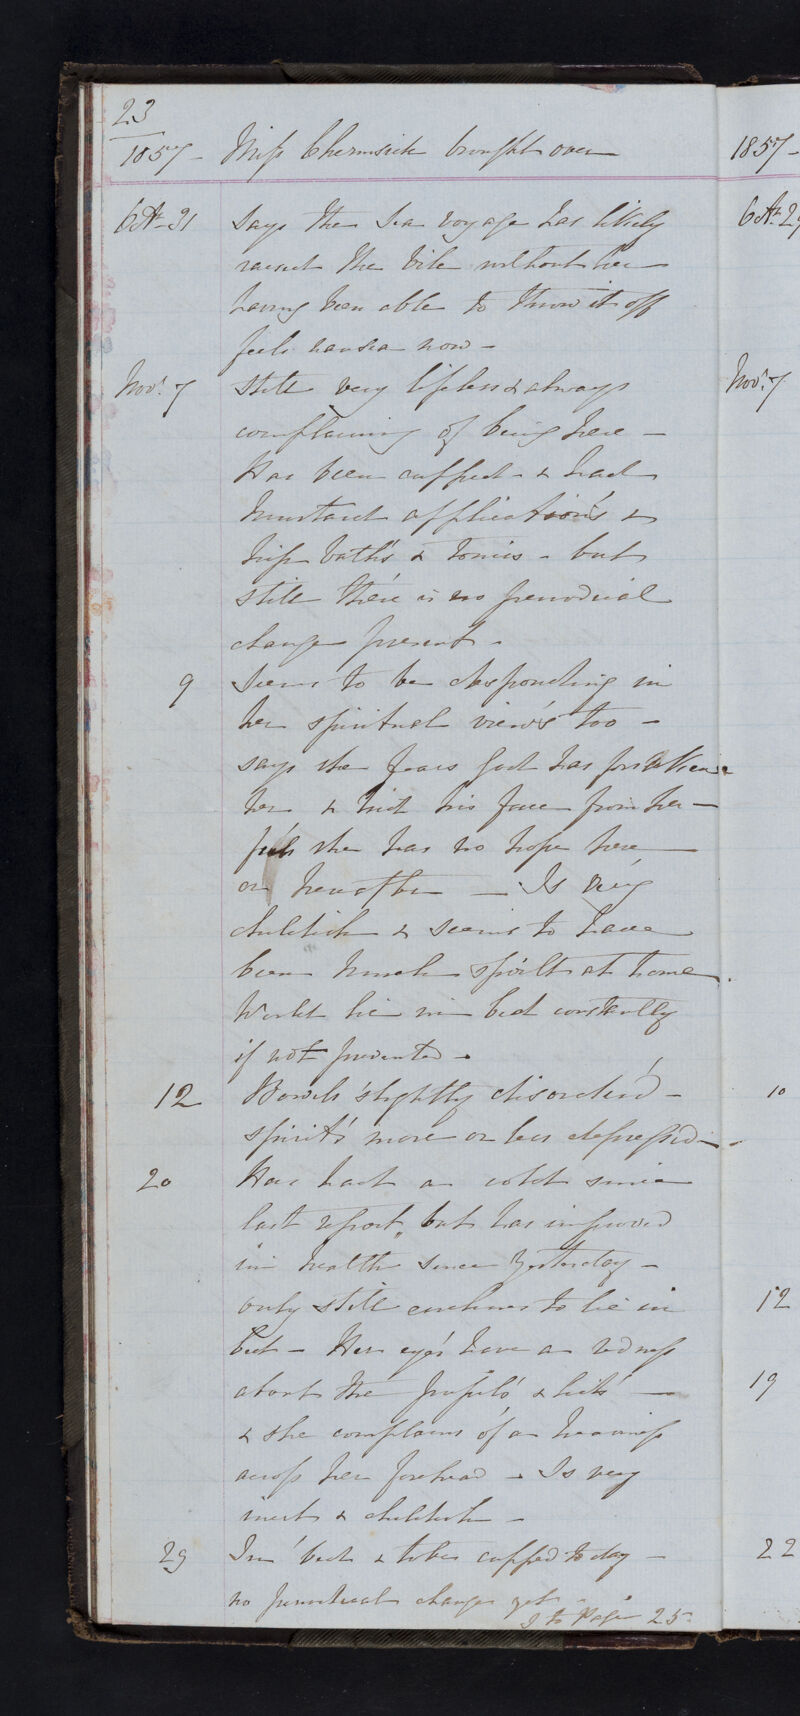 23
1857 - Miss brought over
Oct 31 says the sea voyage has likely
raised the bile without her
having been able to throw it off
feels nausea now -
Novr 7 Still very lifeless & always
complaining of being here -
Has been cupped & had
mustard applications &
hip baths & tonics - but
still there is no periodical
change present -
9 Seems to be desponding in
her spiritual views too -
says she fears God has forsaken
her & hid his face from her -
feels she has no hope here
or hereafter - Is very
childish & seems to have
been much spoilt at home
Would lie in bed constantly
if not prevented -
12 Bowels slightly disorder'd -
spirits more or less depressed -
20 Has had a cold since
last report, but has improved
in health since yesterday -
only still continues to lie in
bed - Her eyes have a redness
about the pupils & lids -
& she complains of a heaviness
across her forehead - Is very
inert & childish -
29 In bed & to be cupped to day -
no periodical change yet -
to Page 25
1857 -
Oct 29
Novr 7
10
12
19
22